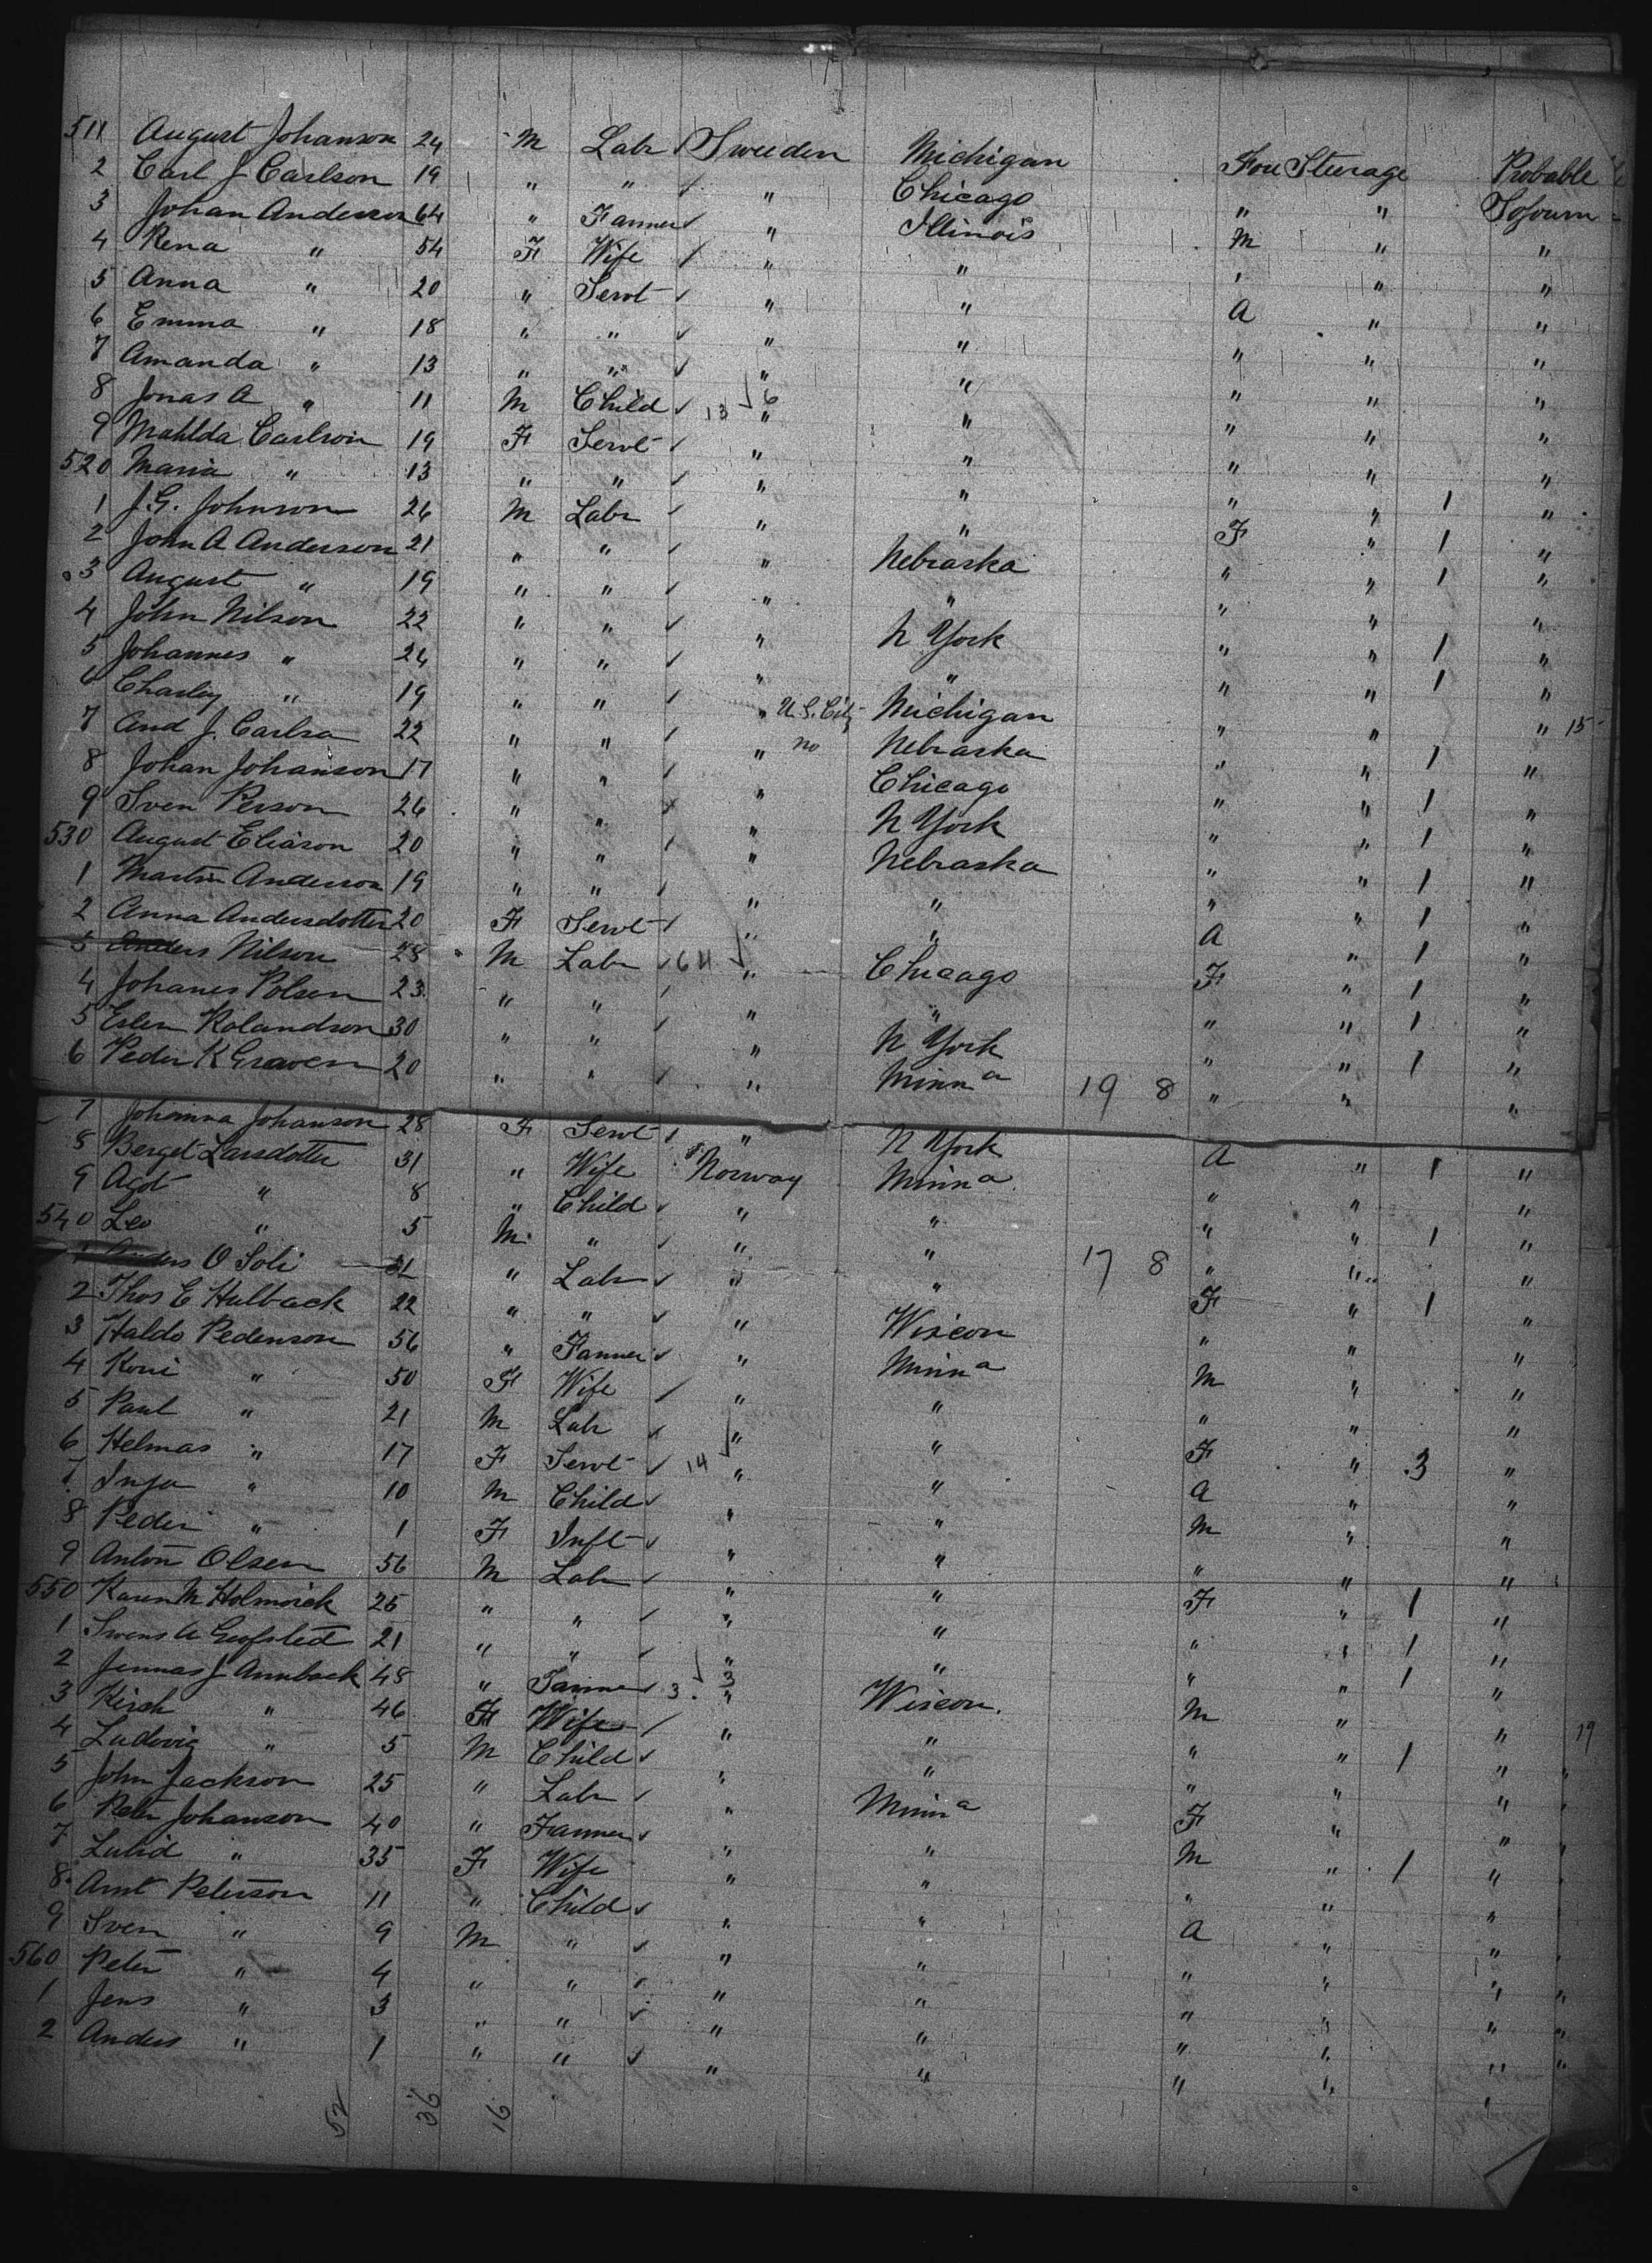 511 August Johanson 24 M Labr Sweden Michigan Fou Steerage Probable
2 Carl J Carlson 19 " " " Chicago " " Sojourn
3 Johan Anderson 64 " Farmer " Illinois M " "
4 Rena " 54 F Wife " " " " "
5 Anna " 20 " Servt " " A " "
6 Emma " 18 " " " " " " "
7 Amanda " 13 " " " " " " "
8 Jonas A " 11 M Child 13 6 " " " " "
9 Mahlda Carlson 19 F Servt " " " " "
520 Maria " 13 " " " " " " 1 "
1 J.G. Johnson 26 M Labr " " F " 1 "
2 John A Anderson 21 " " " Nebraska " " 1 "
3 August " 19 " " " " " " "
4 John Nilson 22 " " " N York " " 1 "
5 Johannes " 24 " " " " " " 1 "
6 Charley " 19 " " " U.S. City Michigan " " " 15
7 And J. Carlso 22 " " " no Nebraska " " 1 "
8 Johan Johanson 17 " " " Chicago " " 1 "
9 Sven Person 26 " " " N York " " 1 "
530 August Eliason 20 " " " Nebraska " " 1 "
1 Martin Anderson 19 " " " " " " 1 "
2 Anna Andersdotter 20 F Servt " " A " 1 "
3 Anders Nilson 28 M Labr 64 " Chicago F " 1 "
4 Johanes Polsen 23 " " " " " " 1 "
5 Rolandson 30 " " " N York " " 1 "
6 Peder K Graven 20 " " " Minna 19 8 " " "
7 Johanna Johanson 28 F Servt " N York A " 1 "
8 Berget Larsdotter 31 " Wife Norway Minna " " "
9 Agot " 8 " Child " " " " 1 "
540 Leo " 5 M " " " 17 8 " " "
1 Anders O Soli 31 " Labr " " F " 1 "
2 Thos E Hulback 22 " " " Wiscon " " "
3 Haldo Pedenson 56 " Farmer " Minna M " "
4 Koni " 50 F Wife " " " " "
5 Paul " 21 M Labr " " F " 3 "
6 Helmas " 17 F Servt 14 " " A " "
7 Inga " 10 M Child " " M " "
8 Peder " 1 F Inft " " " " "
9 Anton Olsen 56 M Labr " " F " 1 "
550 Karen M Holmoick 25 " " " " " " 1 "
1 21 " " " " " " 1 "
2 Jennas J Annback 48 " Farmer 3 3 " Wiscon. M " "
3 Kirch " 46 F Wife " " " " 1 " 19
4 Ludovig " 5 M Child " " " " " "
5 John Jackson 25 " Labr " Minna F " "
6 Peter Johanson 40 " Farmer " " M " 1 "
7 Lulid " 35 F Wife " " " " "
8 Arnt Peterson 11 " Child " " A " "
9 Sven " 9 M " " " " " "
560 Peter " 4 " " " " " " "
1 Jens " 3 " " " " " " "
2 Anders " 1 " " " " " " "
52 36 16